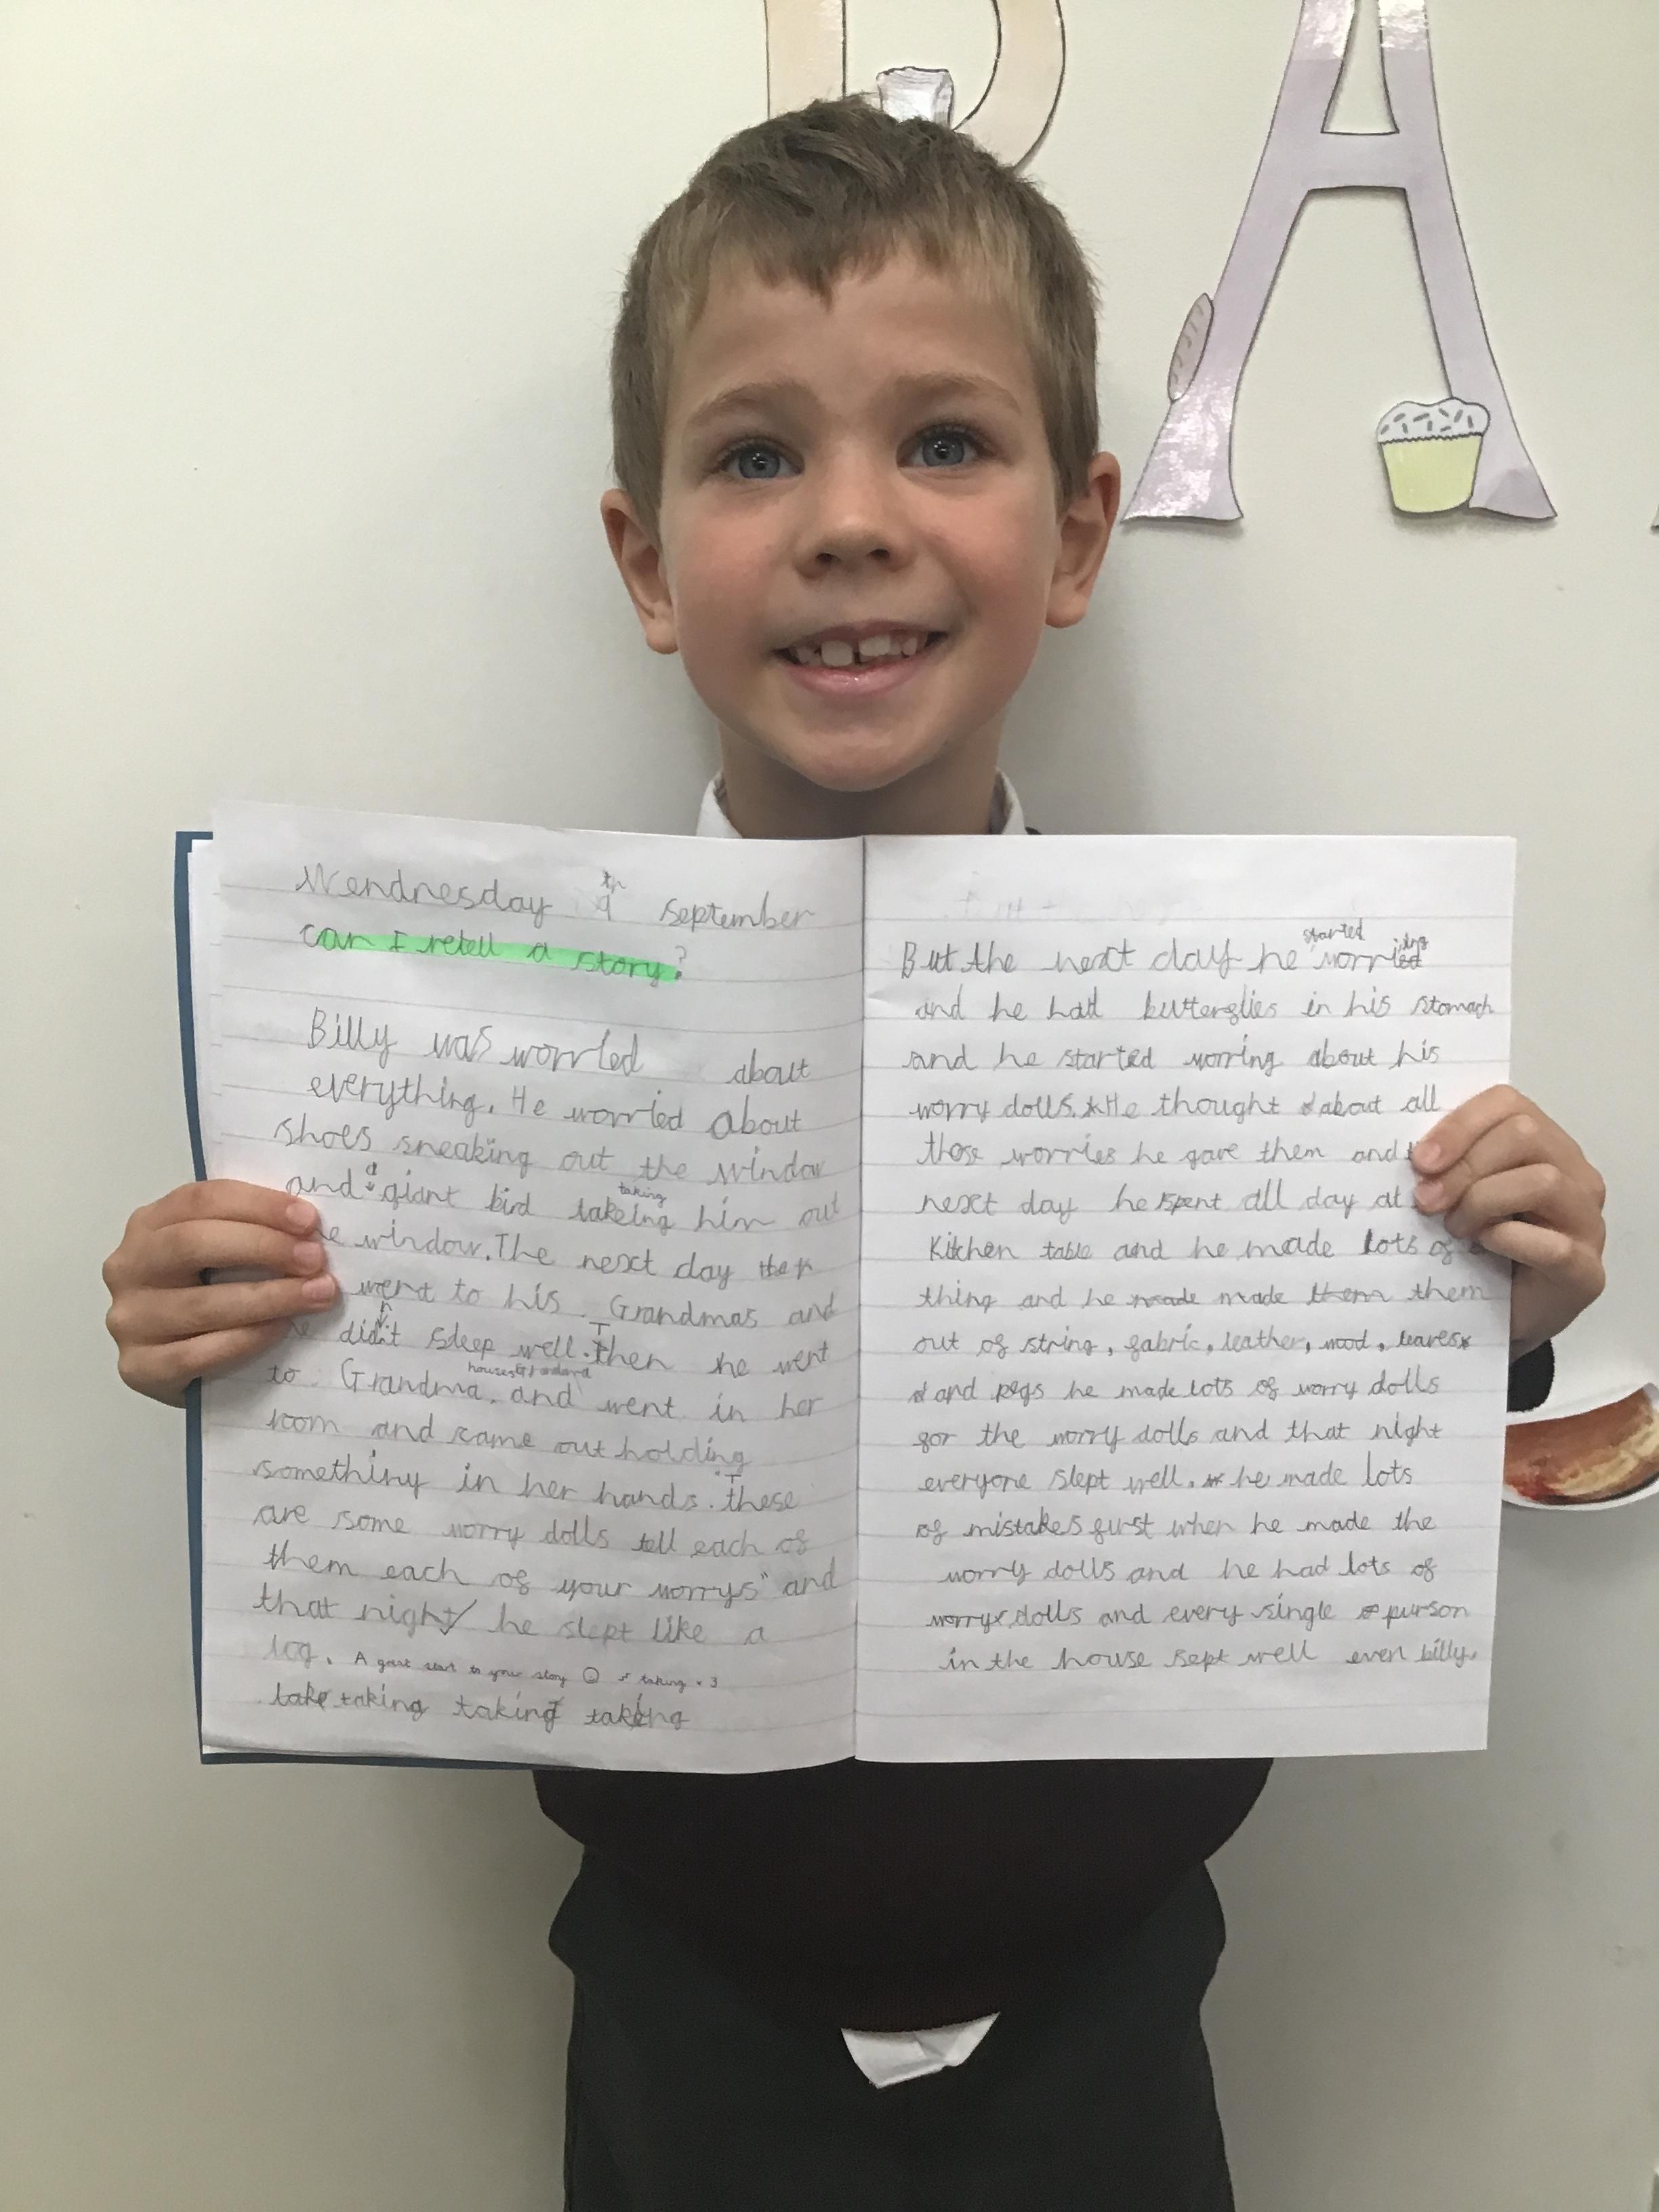 Wendnesday 9th september
can I retell a story?
Billy was worried about
everything. He worried about
shoes sneaking out the window
and a giant bird takeing taking him out
window. The next day
went to his Grandmas and
didn't sleep well. Then he went
to Grandma, houses Grandma and went in her
room and came out holding
something in her hands. These
are some worry dolls tell each of
them each of your worrys" and
that night he slept like a
log. A great start to your story taking x 3
take taking taking taking
But the next day he started worrying
and he had butterflies in his stomach
and he started worring about his
worry dolls. He thought about all
those worries he gave them and
next day he spent all day at
Kitchen table and he made lots of
thing and he made made them them
out of string, fabric, leather, wood, leaves
and pegs he made lots of worry dolls
for the worry dolls and that night
everyone slept well. he made lots
of mistakes furst when he made the
worry dolls and he had lots of
worry dolls and every single purson
in the house sept well even billy.
B A